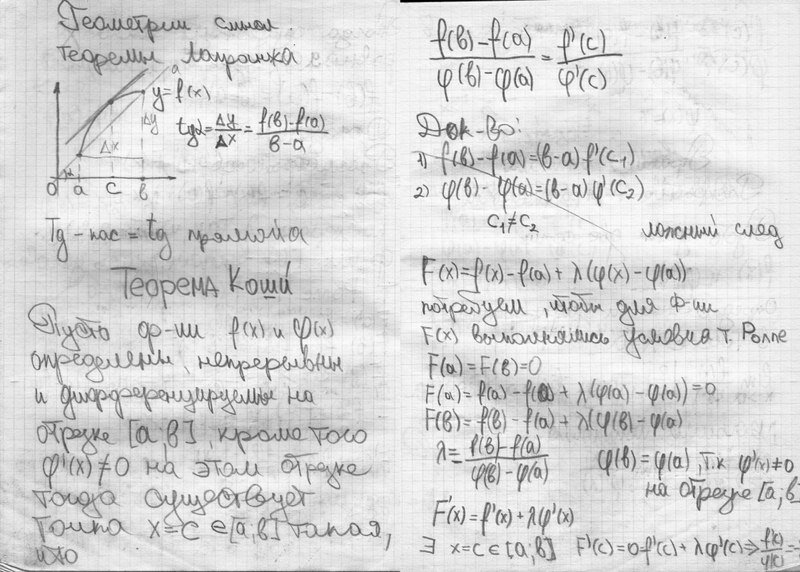 Геометрич смысл
теоремы Лагранжа
a
y=f(x)
Δy
tgα=Δy/Δx=(f(в)-f(a))/(в-a)
Δx
α
0 a c в
Tg-кас = tg прямой a
Теорема Коши
Пусть ф-ии f(x) и φ(x)
определены, непрерывны
и дифференцируемы на
отрезке [a;в] кроме того
φ'(x)≠0 на этом отрезке
тогда существует
точка x=c∈[a;в] такая,
что
(f(в)-f(a))/(φ(в)-φ(a))=f'(c)/φ'(c)
Док-во:
1) f(в)-f(a)=(в-a)f'(c₁)
2) φ(в)-φ(a)=(в-a)φ'(c₂)
c₁≠c₂
ложный след
F(x)=f(x)-f(a)+λ(φ(x)-φ(a))
потребуем, чтобы для ф-ии
F(x) выполнялись условия т. Ролле
F(a)=F(в)=0
F(a)=f(a)-f(a)+λ(φ(a)-φ(a))=0
F(в)=f(в)-f(a)+λ(φ(в)-φ(a)
λ=-(f(в)-f(a))/(φ(в)-φ(a))
φ(в)=φ(a), т.к φ'(x)≠0
на отрезке [a;в]
F'(x)=f'(x)+λφ'(x)
∃ x=c∈[a;в] F'(c)=0 f'(c)+λφ'(c)⇒f'(c)/φ'(c)=-